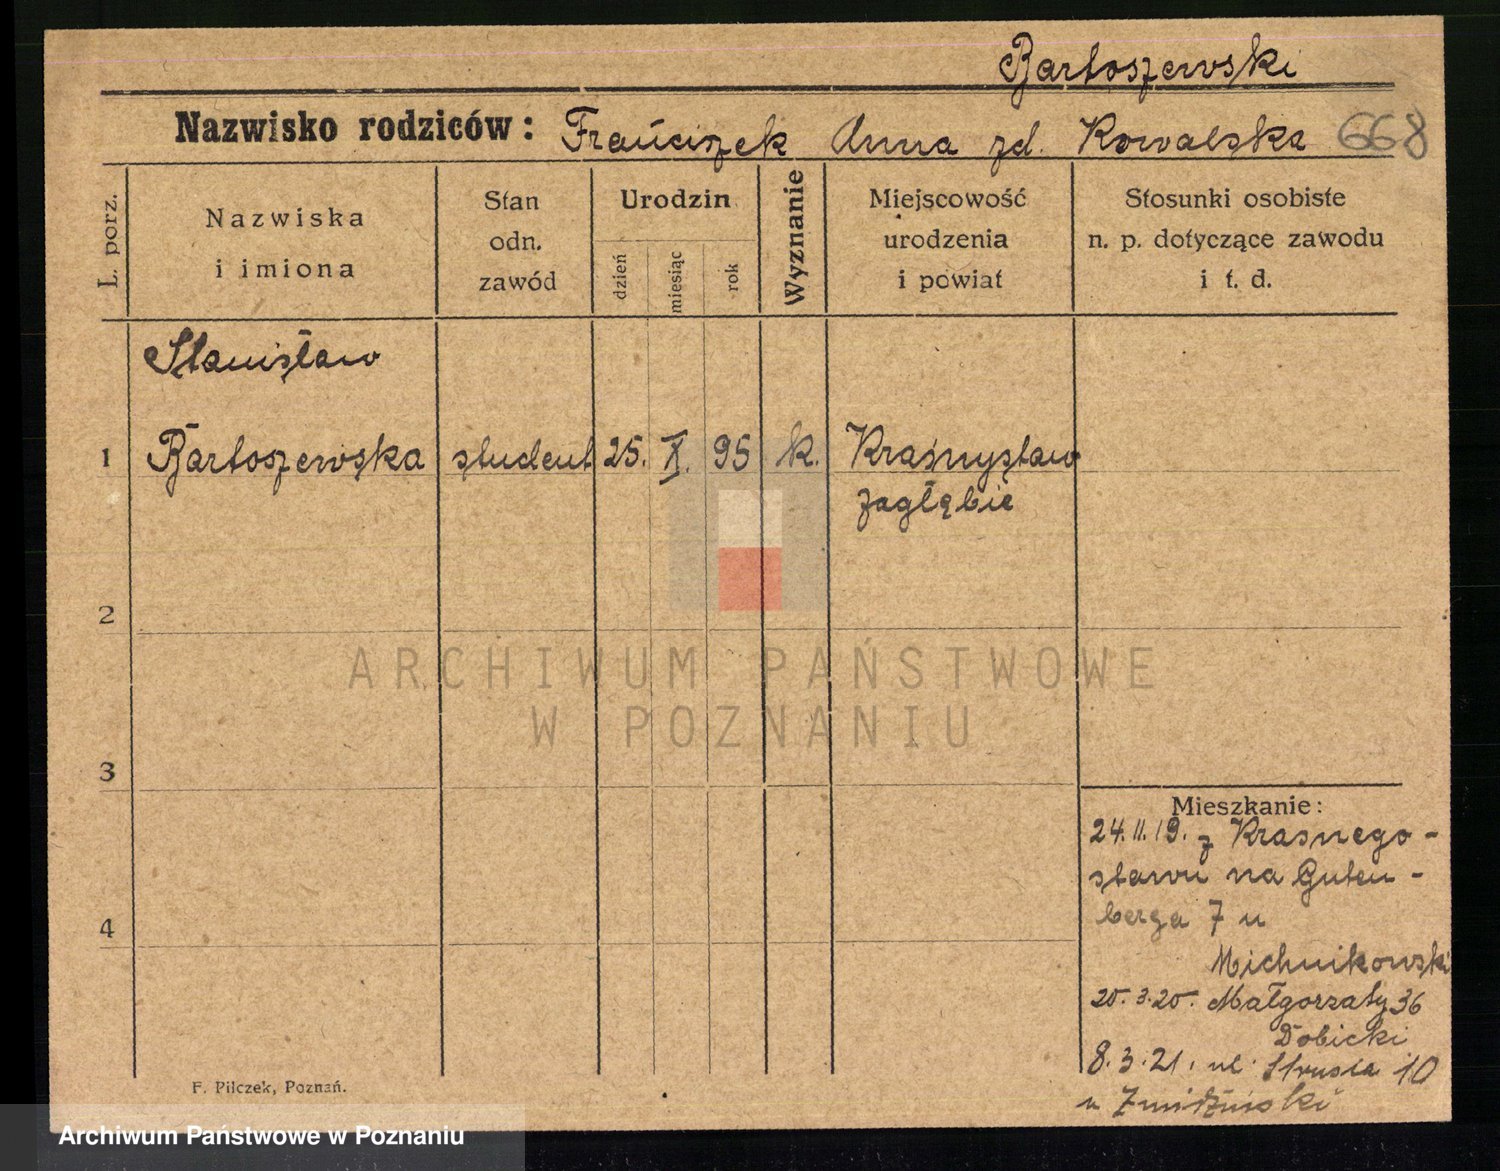 Bartoszewski
Nazwisko rodziców: Franciszek Anna zd. Kowalska 668
L. porz.
Nazwiska
i imiona
Stan
odn.
zawód
Urodzin
dzień
miesiąc
rok
Wyznanie
Miejscowość
urodzenia
i powiat
Stosunki osobiste
n. p. dotyczące zawodu
i t. d.
Stanisław
1 Bartoszewska student 25. X. 95 k. Krasnystaw
zagłębie
2
ARCHIWUM PAŃSTWOWE
W POZNANIU
3
4
Mieszkanie:
24.II.19. z Krasnego-
stawu na Guten-
berga 7 u
Michnikowski
20.3.20. Małgorzaty 36
Dobicki
8.3.21. ul. Strusia 10
u
F. Pilczek, Poznań.
Archiwum Państwowe w Poznaniu